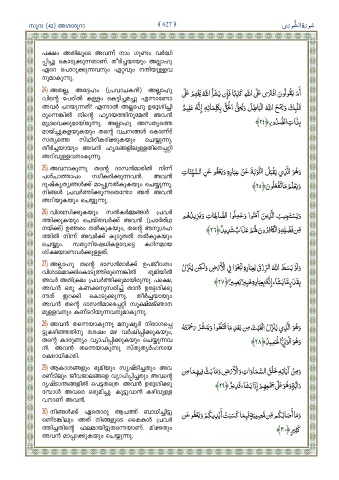 സൂറ (42) അശ്ശൂറാ
﴿ 627 ﴾
سُورَةُ الشُّورَىٰ
പക്ഷം അതിലൂടെ അവന്ന് നാം ഗുണം വർദ്ധി
പ്പിച്ചു കൊടുക്കുന്നതാണ്. തീർച്ചയായും അല്ലാഹു
ഏറെ പൊറുക്കുന്നവനും ഏറ്റവും നന്ദിയുള്ളവ
നുമാകുന്നു.
24) അതല്ല, അദ്ദേഹം (പ്രവാചകൻ) അല്ലാഹു
വിന്റെ പേരിൽ കള്ളം കെട്ടിച്ചമച്ചു എന്നാണോ
അവർ പറയുന്നത്? എന്നാൽ അല്ലാഹു ഉദ്ദേശിച്ചി
രുന്നെങ്കിൽ നിന്റെ ഹൃദയത്തിനുമേൽ അവൻ
മുദ്രവെക്കുമായിരുന്നു. അല്ലാഹു അസത്യത്തെ
മായ്ച്ചുകളയുകയും തന്റെ വചനങ്ങൾ കൊണ്ട്
സത്യത്തെ സ്ഥിരീകരിക്കുകയും ചെയ്യുന്നു.
തീർച്ചയായും അവൻ ഹൃദയങ്ങളിലുള്ളതിനെപ്പറ്റി
അറിവുള്ളവനാകുന്നു.
أَمْ يَقُولُونَ افْتَرَىٰ عَلَى اللَّهِ كَذِبًا فَإِن يَشَإِ اللَّهُ يَخْتِمْ عَلَىٰ
قَلْبِكَ وَيَمْحُ اللَّهُ الْبَاطِلَ وَيُحِقُّ الْحَقَّ بِكَلِمَاتِهِ إِنَّهُ عَلِيمٌ
بِذَاتِ الصُّدُورِ ﴿٢٤﴾
25) അവനാകുന്നു തന്റെ ദാസൻമാരിൽ നിന്ന്
പശ്ചാത്താപം സ്വീകരിക്കുന്നവൻ. അവൻ
ദുഷ്കൃത്യങ്ങൾക്ക് മാപ്പുനൽകുകയും ചെയ്യുന്നു.
നിങ്ങൾ പ്രവർത്തിക്കുന്നതെന്തോ അത് അവൻ
അറിയുകയും ചെയ്യുന്നു.
وَهُوَ الَّذِي يَقْبَلُ التَّوْبَةَ عَنْ عِبَادِهِ وَيَعْفُو عَنِ السَّيِّئَاتِ
وَيَعْلَمُ مَا تَفْعَلُونَ ﴿٢٥﴾
26) വിശ്വസിക്കുകയും സൽകർമ്മങ്ങൾ പ്രവർ
ത്തിക്കുകയും ചെയ്തവർക്ക് അവൻ (പ്രാർത്ഥ
നയ്ക്ക്) ഉത്തരം നൽകുകയും, തന്റെ അനുഗ്രഹ
ത്തിൽ നിന്ന് അവർക്ക് കൂടുതൽ നൽകുകയും
ചെയ്യും. സത്യനിഷേധികളാവട്ടെ കഠിനമായ
ശിക്ഷയാണവർക്കുള്ളത്.
وَيَسْتَجِيبُ الَّذِينَ آمَنُوا وَعَمِلُوا الصَّالِحَاتِ وَيَزِيدُهُم
مِّن فَضْلِهِ وَالْكَافِرُونَ لَهُمْ عَذَابٌ شَدِيدٌ ﴿٢٦﴾
27) അല്ലാഹു തന്റെ ദാസൻമാർക്ക് ഉപജീവനം
വിശാലമാക്കികൊടുത്തിരുന്നെങ്കിൽ ഭൂമിയിൽ
അവർ അതിക്രമം പ്രവർത്തിക്കുമായിരുന്നു. പക്ഷെ,
അവൻ ഒരു കണക്കനുസരിച്ച് താൻ ഉദ്ദേശിക്കു
ന്നത് ഇറക്കി കൊടുക്കുന്നു. തീർച്ചയായും
അവൻ തന്റെ ദാസൻമാരെപ്പറ്റി സൂക്ഷ്മജ്ഞാന
മുള്ളവനും കണ്ടറിയുന്നവനുമാകുന്നു.
وَلَوْ بَسَطَ اللَّهُ الرِّزْقَ لِعِبَادِهِ لَبَغَوْا فِي الْأَرْضِ وَلَٰكِن يُنَزِّلُ
بِقَدَرٍ مَّا يَشَاءُ إِنَّهُ بِعِبَادِهِ خَبِيرٌ بَصِيرٌ ﴿٢٧﴾
28) അവൻ തന്നെയാകുന്നു മനുഷ്യർ നിരാശപ്പെ
ട്ടുകഴിഞ്ഞതിനു ശേഷം മഴ വർഷിപ്പിക്കുകയും,
തന്റെ കാരുണ്യം വ്യാപിപ്പിക്കുകയും ചെയ്യുന്നവ
ൻ. അവൻ തന്നെയാകുന്നു സ്തുത്യർഹനായ
രക്ഷാധികാരി.
وَهُوَ الَّذِي يُنَزِّلُ الْغَيْثَ مِن بَعْدِ مَا قَنَطُوا وَيَنشُرُ رَحْمَتَهُ
وَهُوَ الْوَلِيُّ الْحَمِيدُ ﴿٢٨﴾
29) ആകാശങ്ങളും ഭൂമിയും സൃഷ്ടിച്ചതും അവ
രണ്ടിലും ജീവജാലങ്ങളെ വ്യാപിപ്പിച്ചതും അവന്റെ
ദൃഷ്ടാന്തങ്ങളിൽ പെട്ടതത്രെ. അവൻ ഉദ്ദേശിക്കു
മ്പോൾ അവരെ ഒരുമിച്ചു കൂട്ടുവാൻ കഴിവുള്ള
വനാണ് അവൻ.
وَمِنْ آيَاتِهِ خَلْقُ السَّمَاوَاتِ وَالْأَرْضِ وَمَا بَثَّ فِيهِمَا مِن
دَابَّةٍ وَهُوَ عَلَىٰ جَمْعِهِمْ إِذَا يَشَاءُ قَدِيرٌ ﴿٢٩﴾
30) നിങ്ങൾക്ക് ഏതൊരു ആപത്ത് ബാധിച്ചിട്ടു
ണ്ടെങ്കിലും അത് നിങ്ങളുടെ കൈകൾ പ്രവർ
ത്തിച്ചതിന്റെ ഫലമായിട്ടുതന്നെയാണ്. മിക്കതും
അവൻ മാപ്പാക്കുകയും ചെയ്യുന്നു.
وَمَا أَصَابَكُم مِّن مُّصِيبَةٍ فَبِمَا كَسَبَتْ أَيْدِيكُمْ وَيَعْفُو عَن
كَثِيرٍ ﴿٣٠﴾